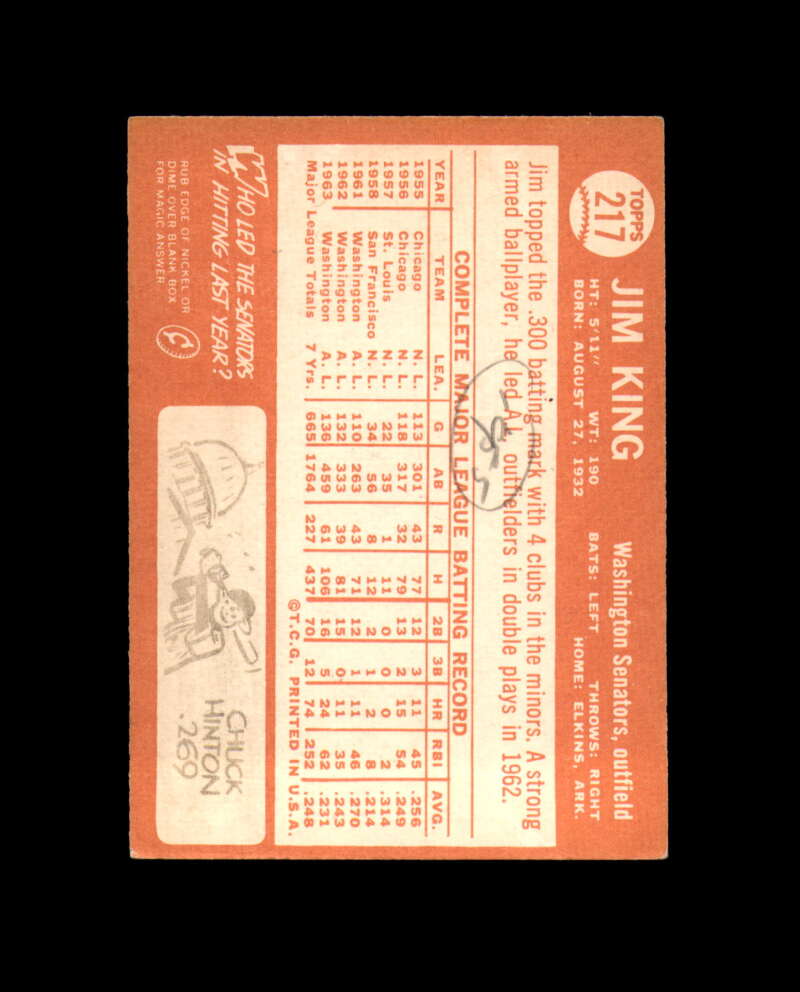 TOPPS
217
JIM KING
Washington Senators, outfield
HT: 5'11" WT: 190 BATS: LEFT THROWS: RIGHT
BORN: AUGUST 27, 1932 HOME: ELKINS, ARK.
Jim topped the .300 batting mark with 4 clubs in the minors. A strong
armed ballplayer, he led A.L. outfielders in double plays in 1962.
COMPLETE MAJOR LEAGUE BATTING RECORD
YEAR TEAM LEA. G AB R H 2B 3B HR RBI AVG.
1955 Chicago N. L. 113 301 43 77 12 3 11 45 .256
1956 Chicago N. L. 118 317 32 79 13 2 15 54 .249
1957 St. Louis N. L. 22 35 1 11 0 0 0 2 .314
1958 San Francisco N. L. 34 56 8 12 2 1 2 8 .214
1961 Washington A. L. 110 263 43 71 12 1 11 46 .270
1962 Washington A. L. 132 333 39 81 15 0 11 35 .243
1963 Washington A. L. 136 459 61 106 16 5 24 62 .231
Major League Totals 7 Yrs. 665 1764 227 437 70 12 74 252 .248
©T.C.G. PRINTED IN U.S.A.
WHO LED THE SENATORS
IN HITTING LAST YEAR?
RUB EDGE OF NICKEL OR
DIME OVER BLANK BOX
FOR MAGIC ANSWER
CHUCK
HINTON
.269